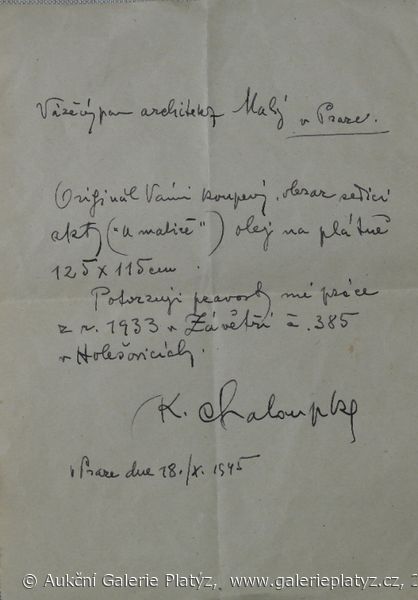 Vážený pan architekt Malý v Praze.
Originál Vámi koupený, obraz sedící
akt („U matiče“) olej na plátně
125 x 115 cm.
Potvrzuji pravost mé práce
z r. 1933 v Závětří č. 385
v Holešovicích.
K. Chaloupka
v Praze dne 18./X. 1945
© Aukční Galerie Platýz, www.galerieplatyz.cz,